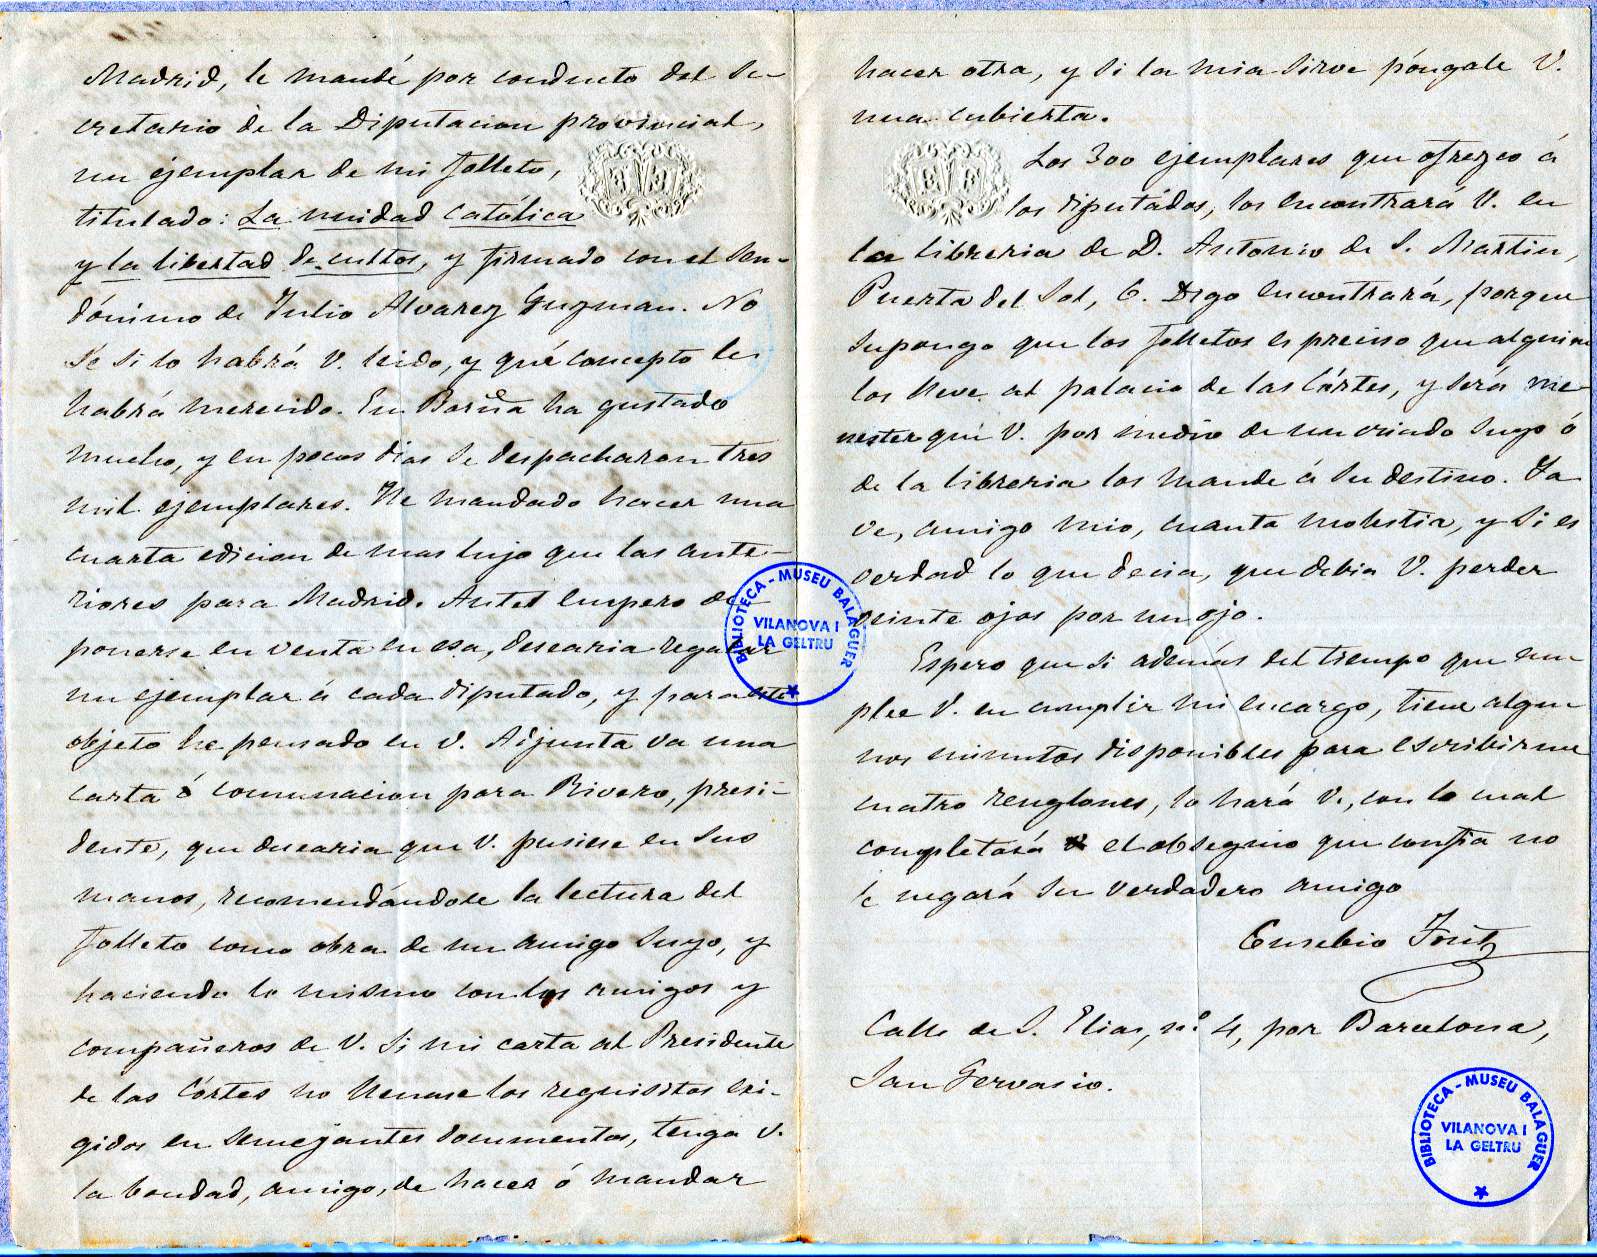 Madrid, le mandé por conducto del Se-
cretario de la Diputacion provincial,
un ejemplar de mi folleto,
titulado: La unidad católica
y la libertad de cultos, y firmado con el seu-
dónimo de Julio Alvarez Guzman. No
sé si lo habrá V. leido, y qué concepto le
habrá merecido. En Barña ha gustado
mucho, y en pocos dias se despacharon tres
mil ejemplares. He mandado hacer una
cuarta edicion de mas lujo que las ante-
riores para Madrid. Antes empero de
ponerse en venta en esa, desearia regalar
un ejemplar á cada diputado, y para este
objeto he pensado en V. Adjunta va una
carta ó comunicacion para Rivero, presi-
dente, que desearia que V. pusiese en sus
manos, recomendándole la lectura del
folleto como obra de un amigo suyo, y
haciendo lo mismo con los amigos y
compañeros de V. Si mi carta al Presidente
de las Córtes no llenase los requisitos exi-
gidos en semejantes documentos, tenga V.
la bondad, amigo, de hacer ó mandar
hacer otra, y si la mia sirve póngale V.
una cubierta.
Los 300 ejemplares que ofrezco á
los diputados, los encontrará V. en
la libreria de D. Antonio de S. Martin,
Puerta del Sol, 6. Digo encontrará, porque
supongo que los folletos es preciso que alguien
los lleve al palacio de las Córtes, y será me-
nester que V. por medio de un criado suyo ó
de la libreria los mande á su destino. Ya
ve, amigo mio, cuanta molestia, y si es
verdad lo que decia, que debia V. perder
veinte ojos por un ojo.
Espero que si además del tiempo que em-
plee V. en cumplir mi encargo, tiene algu-
nos minutos disponibles para escribirme
cuatro renglones, lo hará V., con lo cual
completará el obsequio que confia no
le negará su verdadero amigo
Eusebio Font
Calle de S. Elias, n.º 4, por Barcelona,
San Gervasio.
BIBLIOTECA - MUSEU BALAGUER
VILANOVA I
LA GELTRU
BIBLIOTECA - MUSEU BALAGUER
VILANOVA I
LA GELTRU